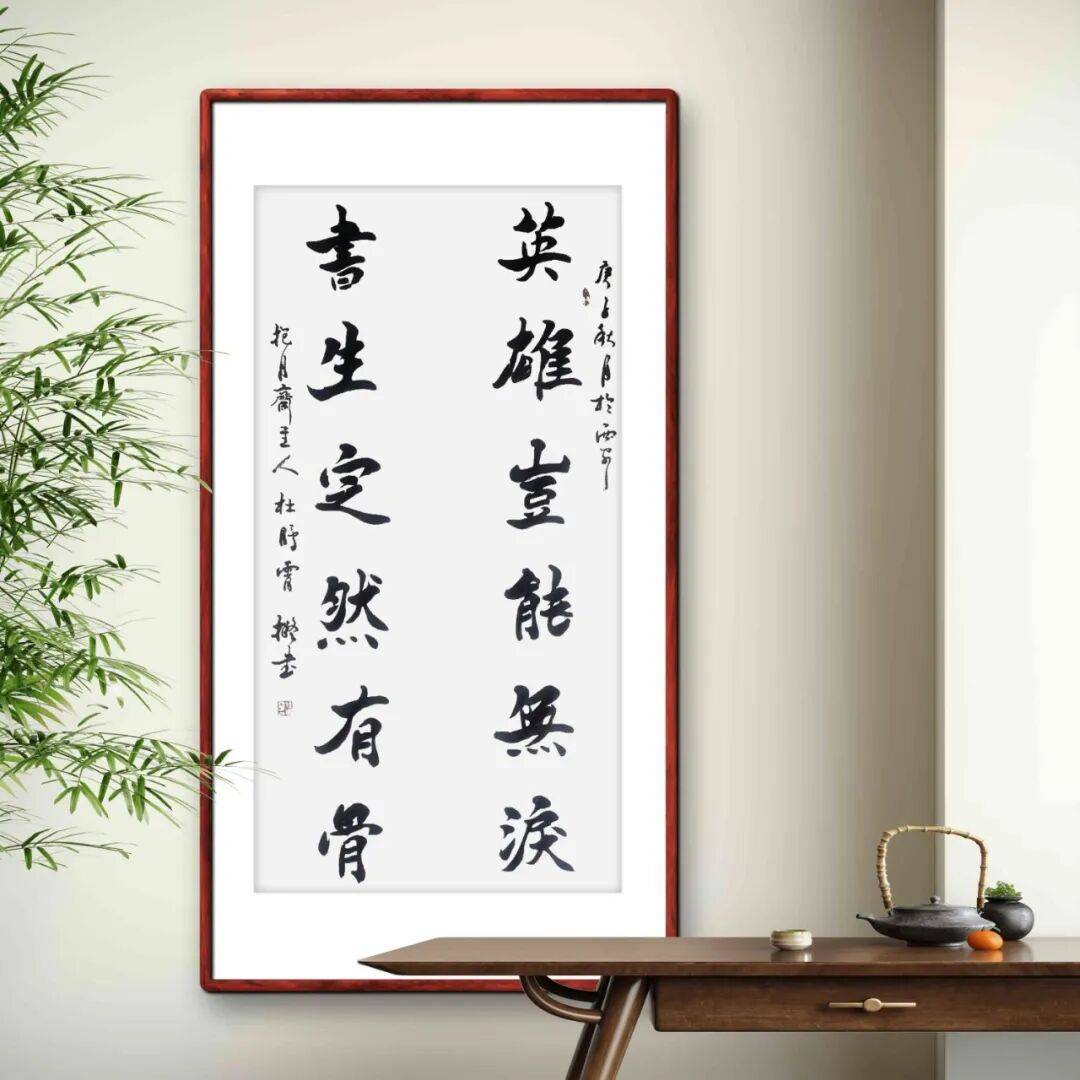 庚子秋月於西
英雄豈能無淚
書生定然有骨
抱月齋主人杜霄书